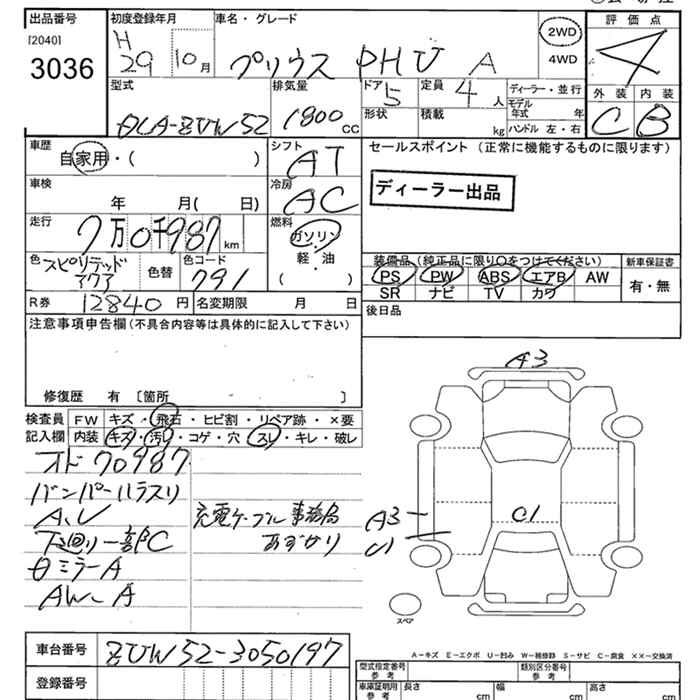 出品番号 初度登録年月 車名・グレード 2WD 評価点
[2040] H 29 10月 プリウス PHV A 4WD 4
3036
型式 排気量 ドア 5 定員 4人 ディーラー・並行 外装 内装
DLA-ZVW52 1800cc 形状 積載 kg モデル年式 年 C B
ハンドル 左・右
車歴 シフト セールスポイント (正常に機能するものに限ります)
自家用・( ) AT
車検 冷房 ディーラー出品
年 月( 日) AC
走行 燃料
7万0千987km ガソリン・軽・油
色 色替 色コード ( ) 装備品(純正品に限り○をつけてください) 新車保証書
スピリテッドアクア 791 PS PW ABS エアB AW 有・無
SR ナビ TV カワ
R券 12840円 名変期限 月 日 後日品
注意事項申告欄(不具合内容等は具体的に記入して下さい)
修復歴 有 [箇所 ]
A3
検査員 FW キズ・飛石・ヒビ割・リペア跡・×要
記入欄 内装 キズ・汚れ・コゲ・穴・スレ・キレ・破レ
オド70987
バンパーハラスリ
A、U 充電ケーブル事務局
下廻り一部C あずかり
ミラーA
AW-A
A3
U1
C1
スペア
A-キズ E-エクボ U-凹み W-補修跡 S-サビ C-腐食 ××-交換済
車台番号 ZVW52-3050197
登録番号
型式指定番号 参考 類別区分番号 参考
車庫証明用 参考 長さ cm 幅 cm 高さ cm